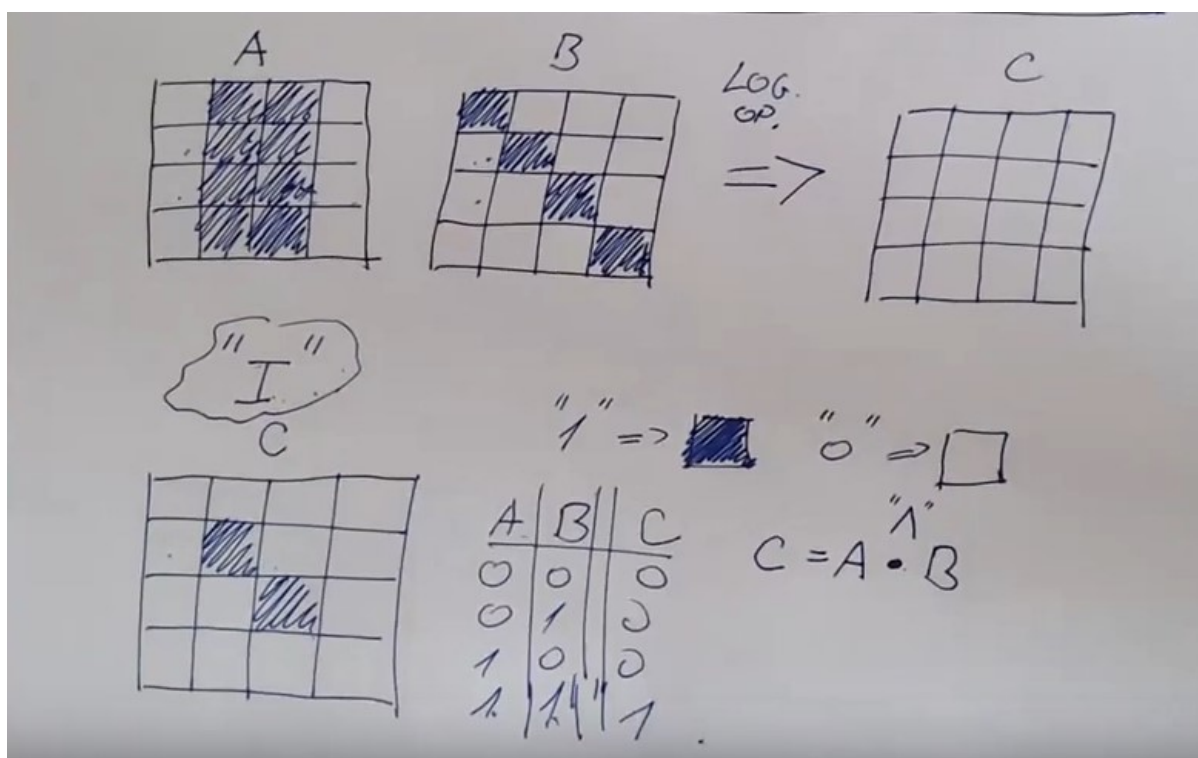 A B LOG. C
OP.
=>
"I"
C
"1" => "0" =>
A B C
0 0 0
0 1 0
1 0 0
1 1 1
"∧"
C = A • B